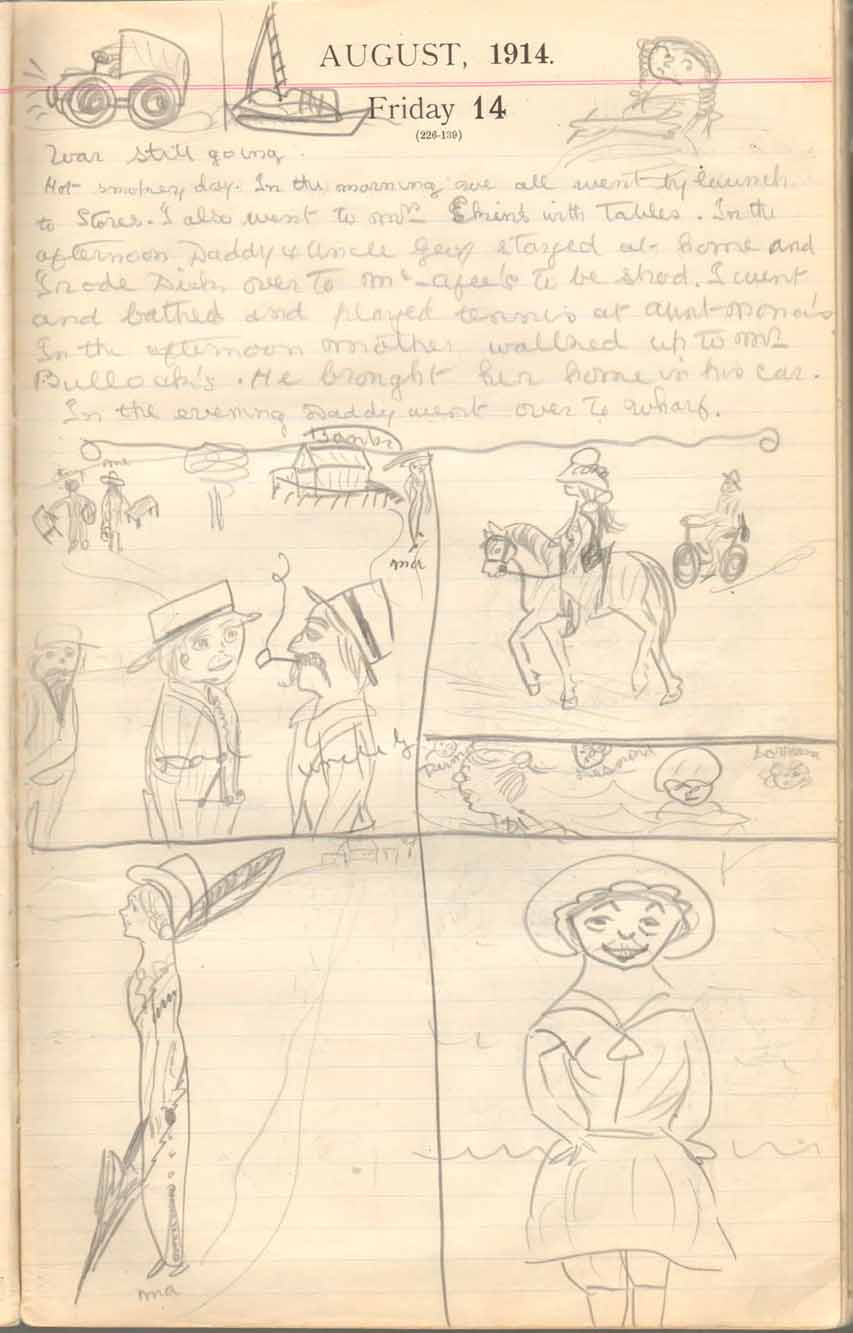 AUGUST, 1914.
Friday 14
(226-139)
War still going.
Hot smokey day. In the morning we all went by launch
to Stores. I also went to Mrs Ekins with Tables. In the
afternoon Daddy & Uncle Gey stayed at home and
I rode Dick over to Mc-afee's to be shod. I went
and bathed and played tennis at aunt-monas
In the afternoon mother walked up to Mr
Bullock's. He brought her home in his car.
In the evening Daddy went over to wharf.
Banks
me
ma
uncle G
Desmond
Dermot
ma